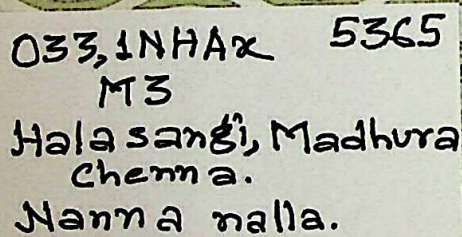 033,1NHAx 5365
M3
Halasangi, Madhura
Chenna.
Nanna nalla.